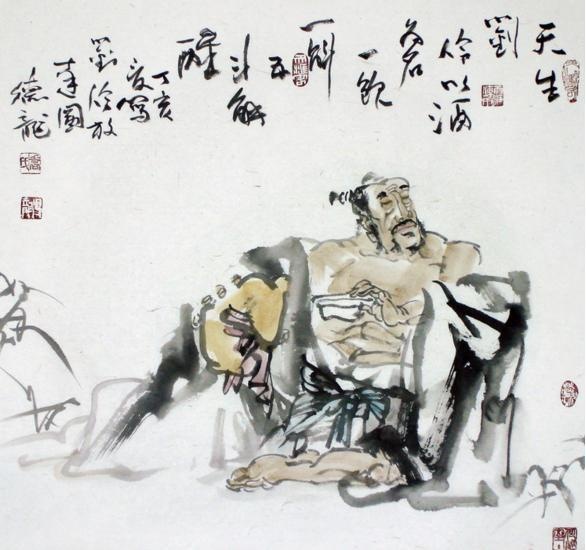 天生
劉
伶以酒
為名
一飲
一斛
五
斗解
酲
丁亥
夏寫
劉伶放
達圖
德龍